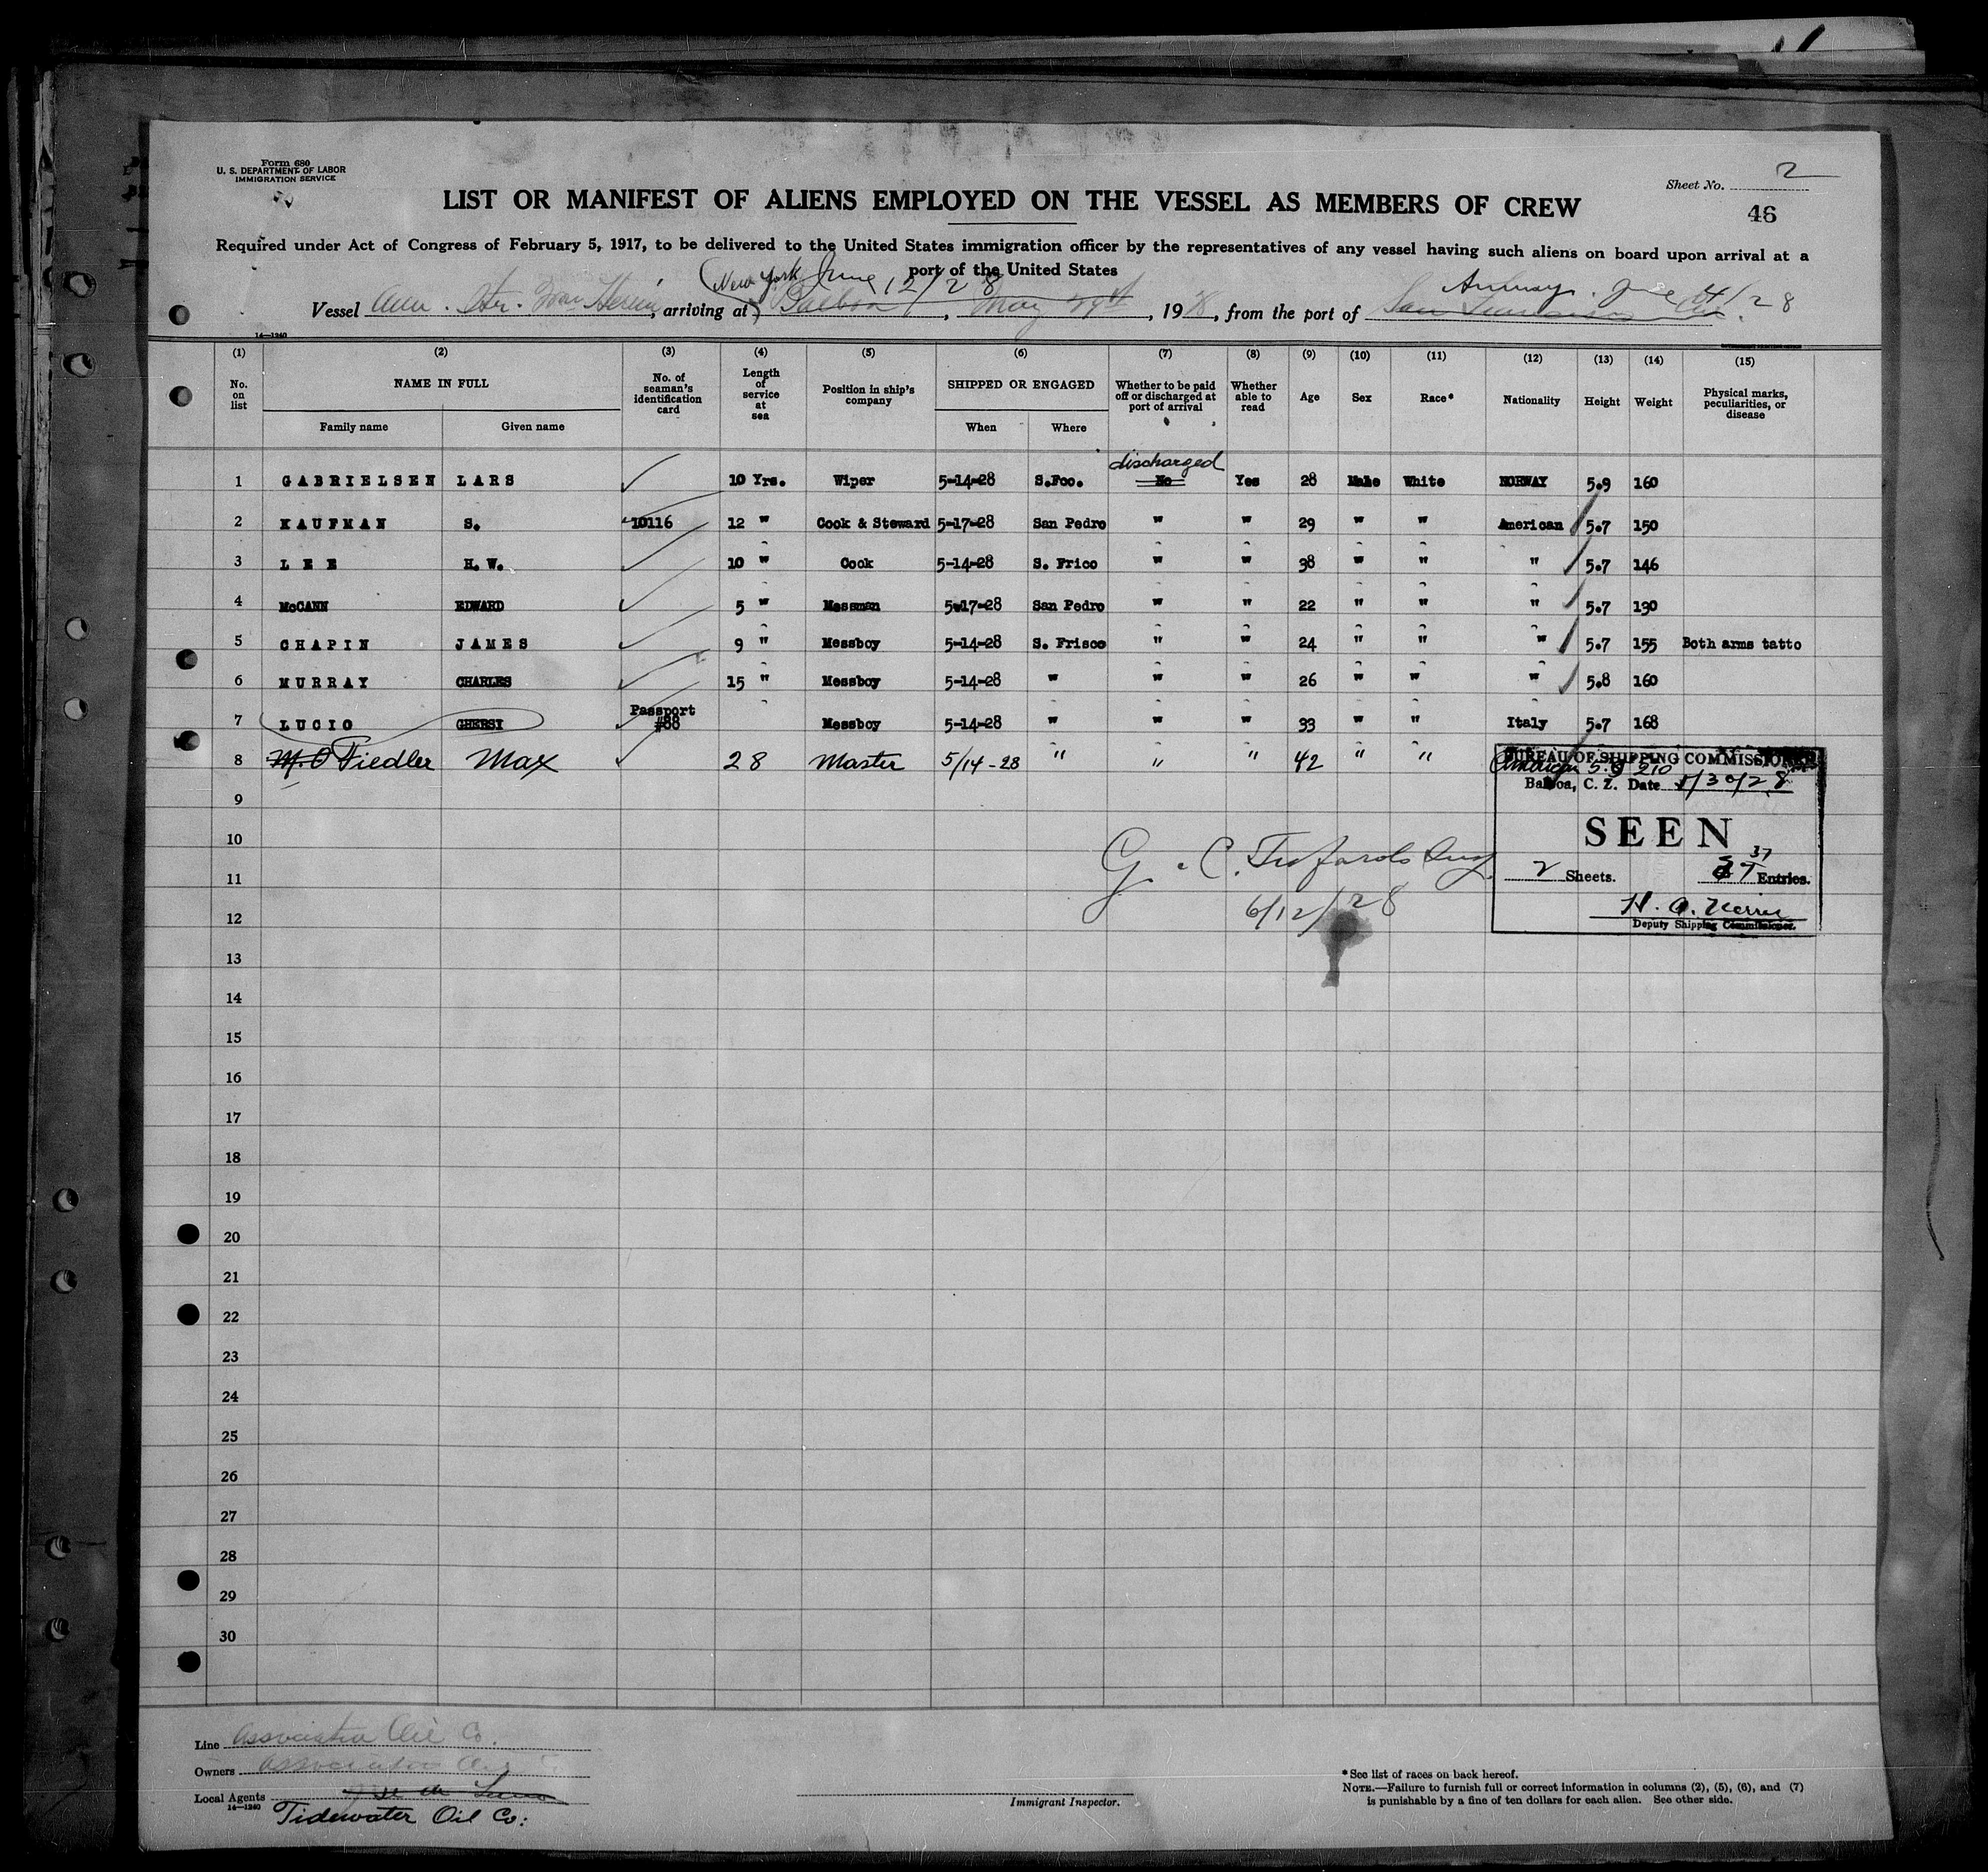 Form 680
U. S. DEPARTMENT OF LABOR
IMMIGRATION SERVICE
Sheet No. 2
46
LIST OR MANIFEST OF ALIENS EMPLOYED ON THE VESSEL AS MEMBERS OF CREW
Required under Act of Congress of February 5, 1917, to be delivered to the United States immigration officer by the representatives of any vessel having such aliens on board upon arrival at a
port of the United States
New York June 12/28
Vessel Am. Str. Wm Herrin, arriving at Balboa, May 29th, 1928, from the port of San Francisco Cal.
14—1240
(1) (2) (3) (4) (5) (6) (7) (8) (9) (10) (11) (12) (13) (14) (15)
No. on list NAME IN FULL Family name Given name No. of seaman's identification card Length of service at sea Position in ship's company SHIPPED OR ENGAGED When Where Whether to be paid off or discharged at port of arrival Whether able to read Age Sex Race* Nationality Height Weight Physical marks, peculiarities, or disease
discharged
1 GABRIELSEN LARS 10 Yrs. Wiper 5-14-28 S.Fco. No Yes 28 Male White NORWAY 5.9 160
2 KAUFMAN S. 10116 12 " Cook & Steward 5-17-28 San Pedro " " 29 " " American 5.7 150
3 LEE H. W. 10 " Cook 5-14-28 S. Frico " " 38 " " " 5.7 146
4 McCANN EDWARD 5 " Messman 5-17-28 San Pedro " " 22 " " " 5.7 190
5 CHAPIN JAMES 9 " Messboy 5-14-28 S. Frisco " " 24 " " " 5.7 155 Both arms tatto
6 MURRAY CHARLES 15 " Messboy 5-14-28 " " " 26 " " " 5.8 160
7 LUCIO GHERSI Passport #88 Messboy 5-14-28 " " " 33 " " Italy 5.7 168
8 M. O Fiedler Max 28 Master 5/14-28 " " " 42 " " American 5.9 210
BUREAU OF SHIPPING COMMISSIONER
Balboa, C. Z. Date 5/30/28
SEEN
37
2 Sheets. Entries.
Deputy Shipping Commissioner.
G. C.
6/12/28
9
10
11
12
13
14
15
16
17
18
19
20
21
22
23
24
25
26
27
28
29
30
Line Associated Oil Co.
Owners Associated Oil
Local Agents
14—1240
Tidewater Oil Co.
Immigrant Inspector.
*See list of races on back hereof.
NOTE.—Failure to furnish full or correct information in columns (2), (5), (6), and (7)
is punishable by a fine of ten dollars for each alien. See other side.